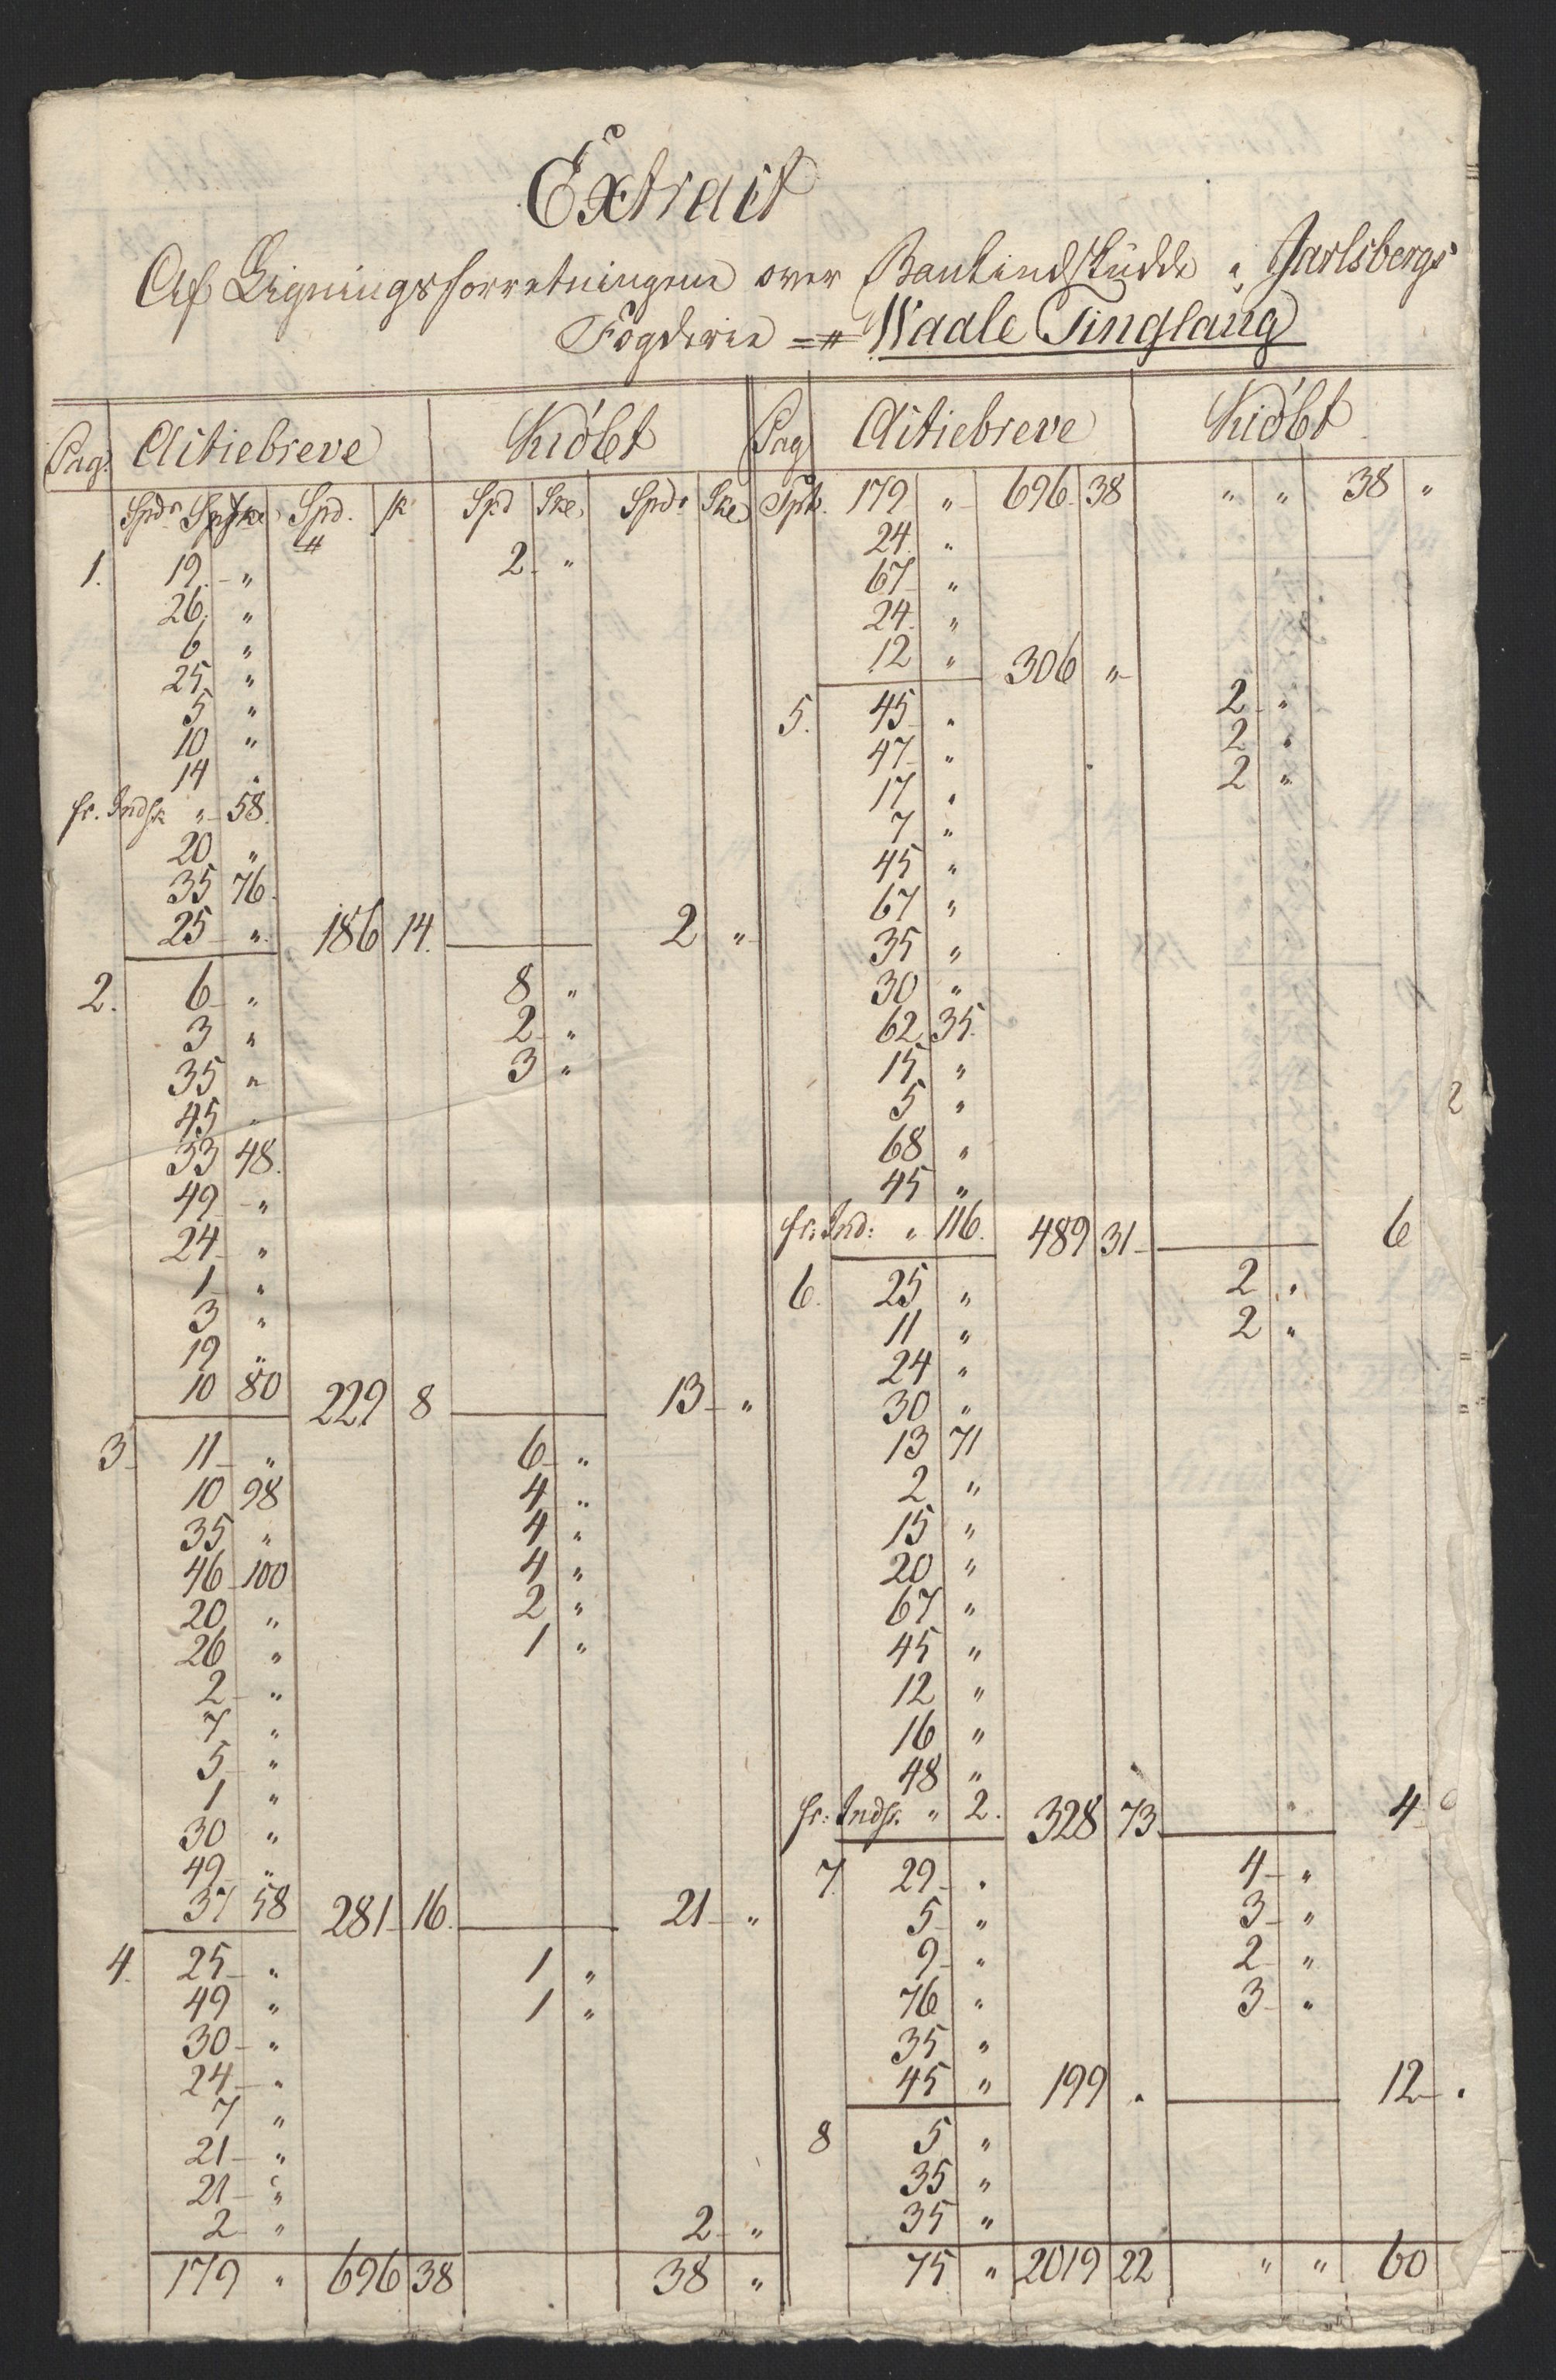 Extract
Af Ligningsforretningene over Bankindskudde i Jarlsbergs
Fogderie =#= Waale Tinglaug
Pag: Actiebreve Kiöbt
Spdr Ske Spd. ſk Spd Ske Spdr Ske
1. 19 " 2 "
26 "
6 "
25 "
5 "
10 "
14 "
fr. Indsk " 58.
20 "
35 76.
25 " 186 14. 2 "
2. 6 " 8 "
3 " 2 "
35 " 3 "
45 "
33 48.
49 "
24 "
1 "
3 "
19 "
10 80 229 8 13 "
3 11 " 6 "
10 98 4 "
35 " 4 "
46 100 4 "
20 " 2 "
26 " 1 "
2 "
7 "
5 "
1 "
30 "
49 "
37 58 281 16. 21 "
4. 25 " 1 "
49 " 1 "
30 "
24 "
7 "
21 "
21 "
2 " 2 "
179 " 696 38 38 "
Pag Actiebreve Kiöbt
Tpt. 179 " 696 38 " " 38 "
24 "
67 "
24 "
12 " 306 "
5. 45 " 2 "
47 " 2 "
17 " 2 "
7 "
45 "
67 "
35 "
30 "
62 35.
15 "
5 "
68 "
45 "
fr: Ind: " 116. 489 31 6
6. 25 " 2 "
11 " 2 "
24 "
30 "
13 71
2 "
15 "
20 "
67 "
45 "
12 "
16 "
48 "
fr: Indsk. " 2. 328 73 " 4
7. 29 " 4 "
5 " 3 "
9 " 2 "
76 " 3 "
35 "
45 " 199 " 12 "
8 5 "
35 "
35 "
75 " 2019 22 " " 60